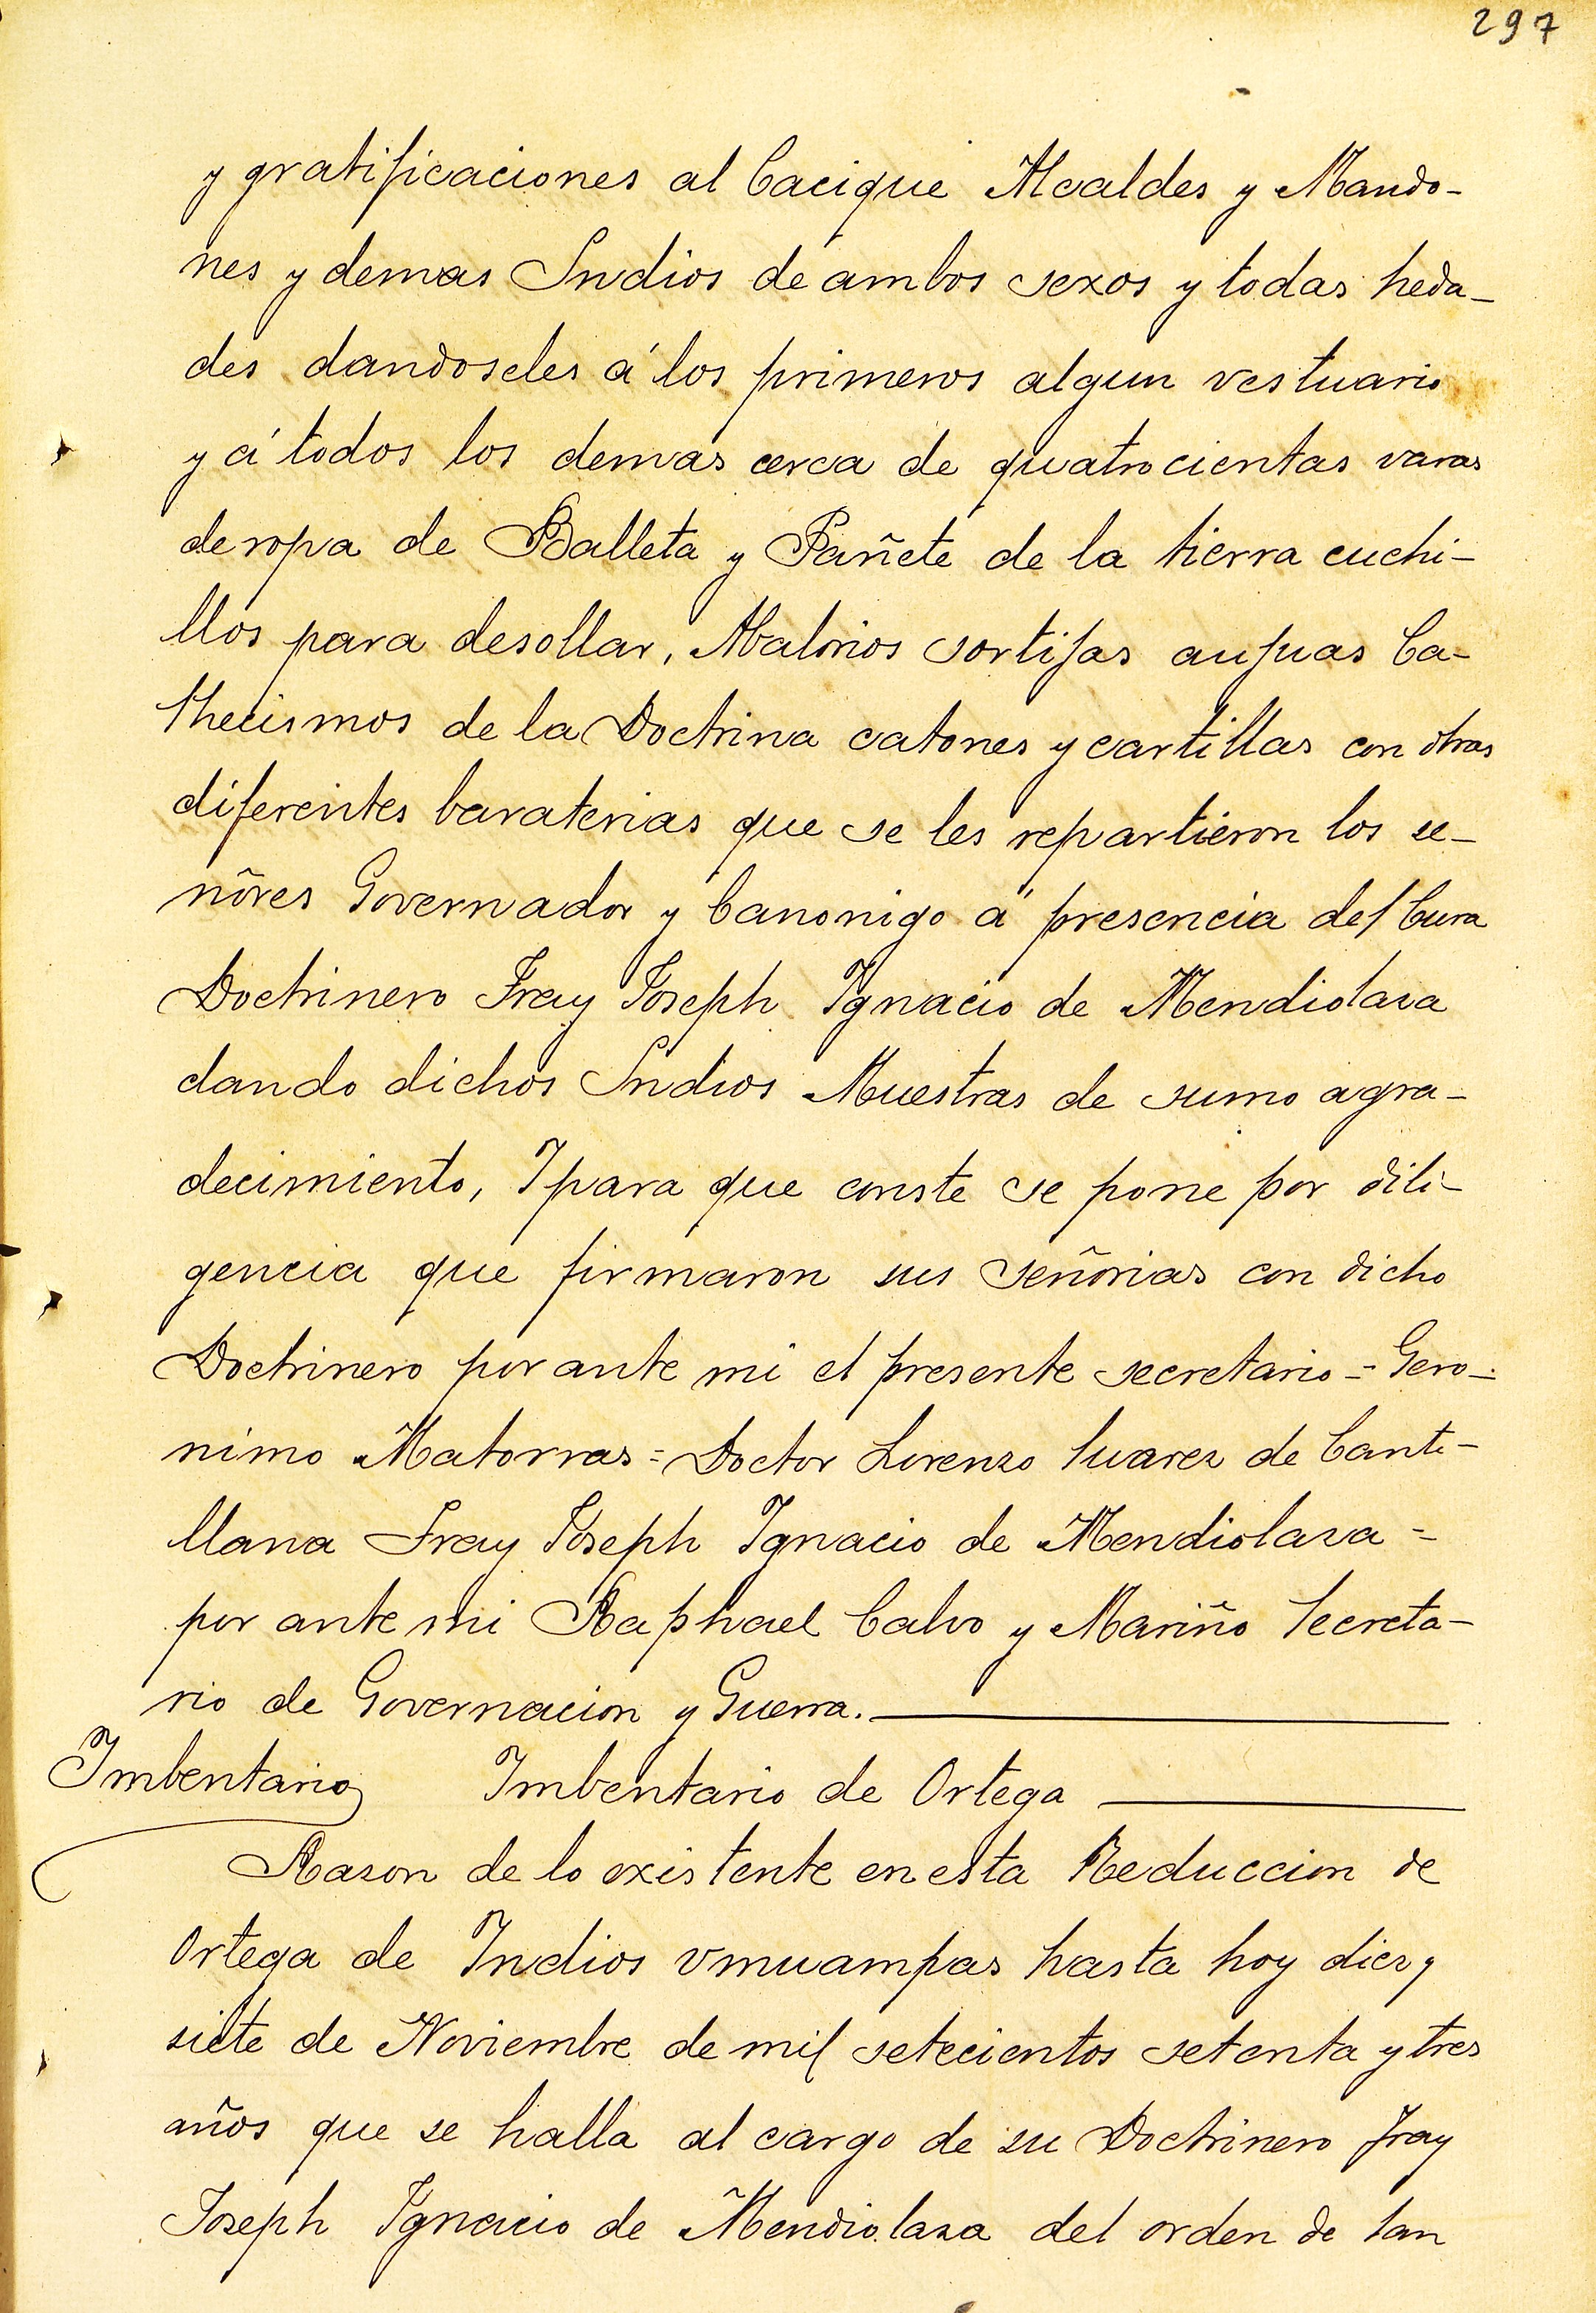 297
y gratificaciones al Cacique Alcaldes y Mando-
nes y demas Indios de ambos sexos y todas heda-
des dandoseles á los primeros algun vestuario
y á todos los demas cerca de quatrocientas varas
de ropa de Balleta y Pañete de la tierra cuchi-
llos para desollar, Abalorios sortijas aujuas Ca-
thecismos de la Doctrina catones y cartillas con otras
diferentes baraterias que se les repartieron los se-
ñores Governador y Canonigo á presencia del Cura
Doctrinero Fray Joseph Ignacio de Mendiolaza
dando dichos Indios Muestras de sumo agra-
decimiento, Y para que conste se pone por dili-
gencia que firmaron sus señorias con dicho
Doctrinero por ante mi el presente secretario = Gero-
nimo Matorras = Doctor Lorenzo Suarez de Canti-
llana Fray Joseph Ignacio de Mendiolaza =
por ante mi Raphael Calvo y Mariño Secreta-
rio de Governacion y Guerra.
Imbentario Imbentario de Ortega
Rason de lo existente en esta Reduccion de
Ortega de Indios vmuampas hasta hoy diez y
siete de Noviembre de mil setecientos setenta y tres
años que se halla al cargo de su Doctrinero Fray
Joseph Ignacio de Mendiolaza del orden de San